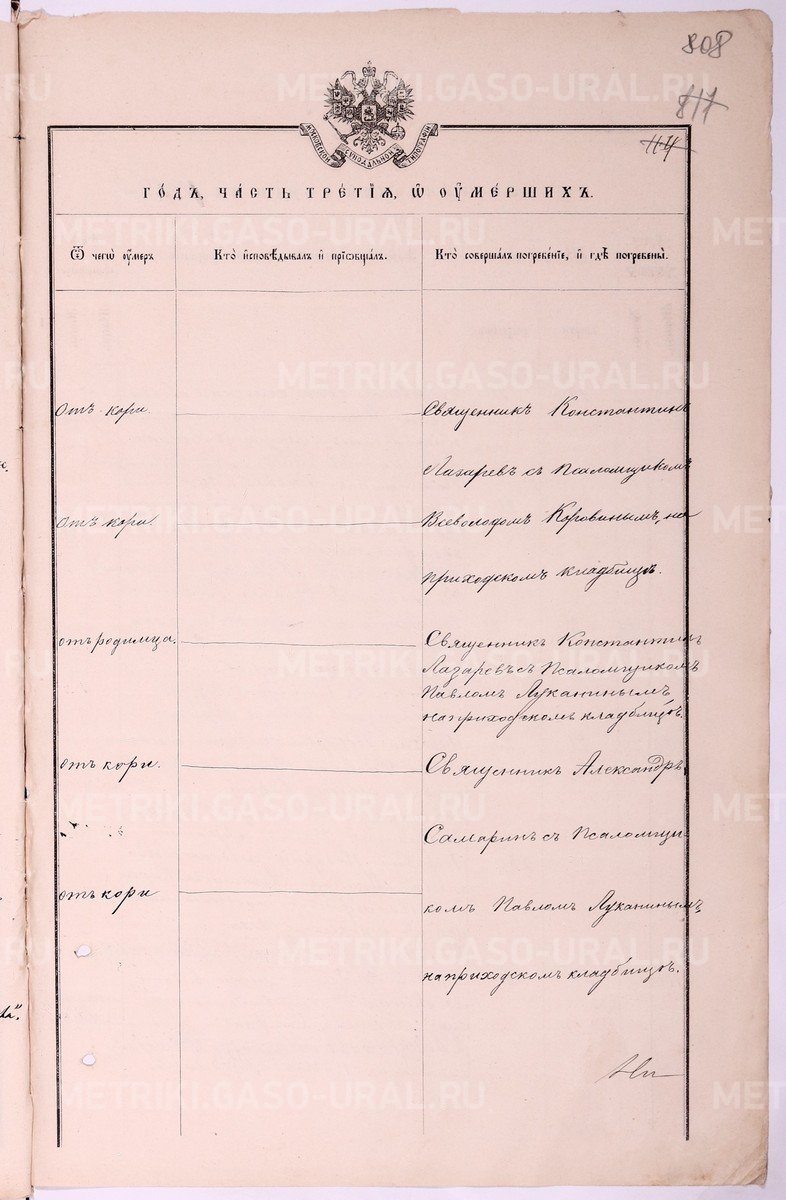 808
817
114
МОСКОВСКОЙ СѴНОДАЛЬНОЙ ТИПОГРАФІИ
ГО́ДА, ЧА́СТЬ ТРЕ́ТІЯ, Ѡ ОУМЕ́РШИХЪ.
Ѿ чегѡ̀ оу́меръ
Кто̀ и҆сповѣ́дывалъ и҆ прїѡбща́лъ.
Кто̀ соверша́лъ погребе́нїе, и҆ гдѣ̀ погребены̀.
Отъ кори.
Священникъ Константинъ
Лазаревъ съ псаломщикомъ
отъ кори.
Всеволодомъ Коровинымъ, на
приходскомъ кладбищѣ.
отъ родимца.
Священникъ Константинъ
Лазаревъ съ Псаломщикомъ
Павломъ Луканинымъ
на приходскомъ кладбищѣ.
отъ кори.
Священникъ Александръ
Самаринъ съ Псаломщи-
отъ кори
комъ Павломъ Луканинымъ
на приходскомъ кладбищѣ.
METRIKI.GASO-URAL.RU